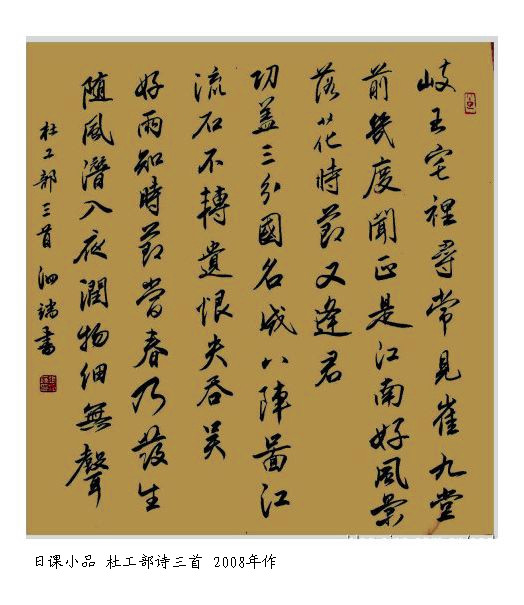 岐王宅裡尋常見崔九堂
前幾度聞正是江南好風景
落花時節又逢君
功盖三分國名成八陣圖江
流石不轉遺恨失吞吴
好雨知時節當春乃發生
随風潛入夜潤物細無聲
杜工部三首 書
日课小品 杜工部诗三首 2008年作